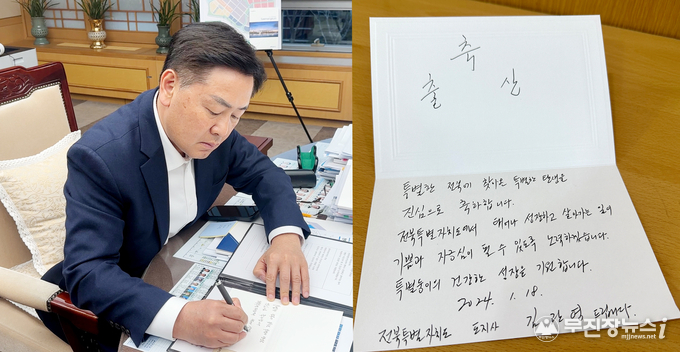 축
출 산
특별한 전북에 찾아온 특별한 탄생을
진심으로 축하합니다.
전북특별자치도에서 태어나 성장하고 살아가는 일이
기쁨과 자긍심이 될 수 있도록 노력하겠습니다.
특별둥이의 건강한 성장을 기원합니다.
2024. 1. 18.
전북특별자치도 도지사 김관영
무진장뉴스i
mjjnews.net